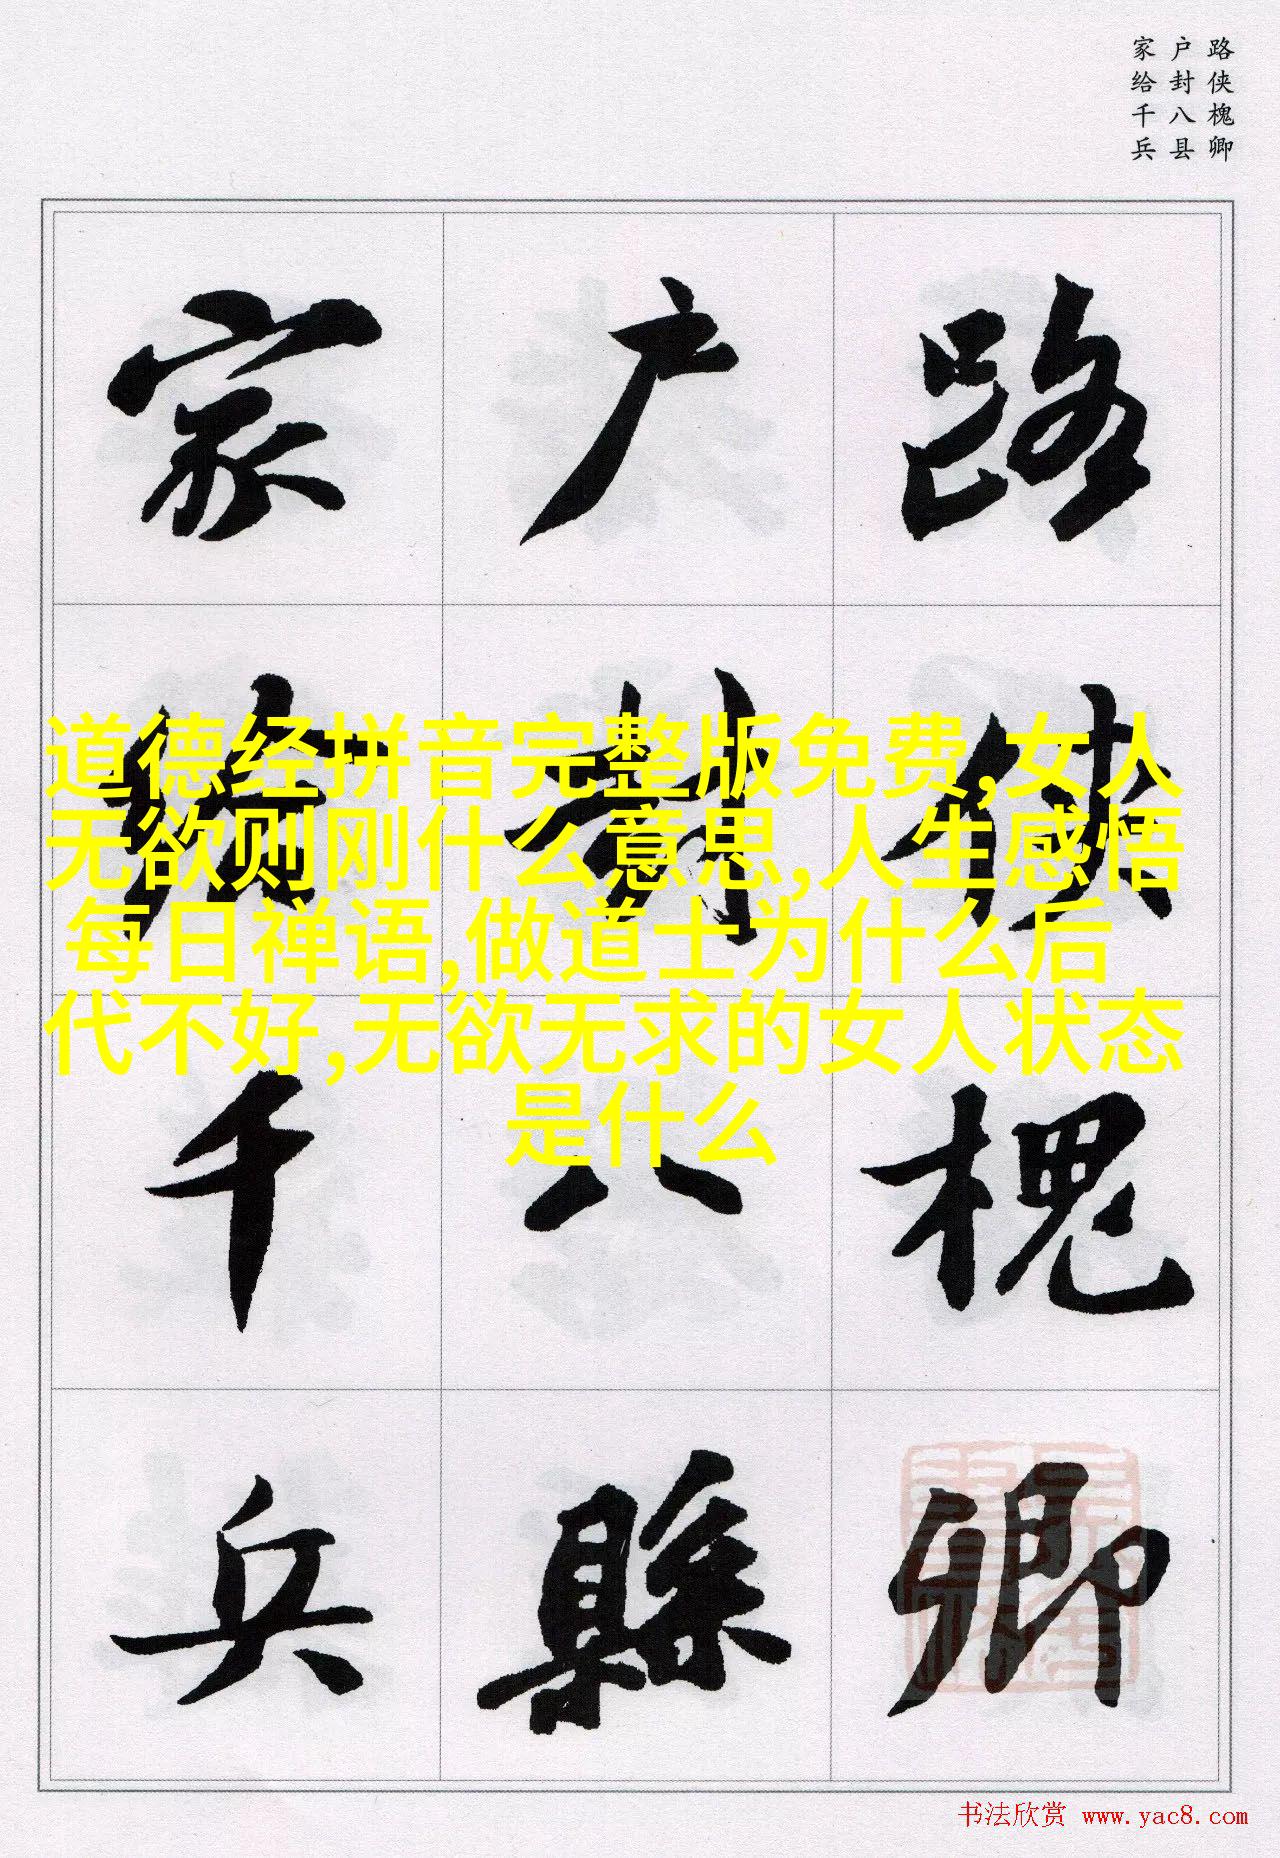 路侠槐卿
户封八县
家给千兵
路侠槐卿
户封八縣
家给千兵
道德经拼音完整版免费,女人
无欲则刚什么意思,人生感悟
每日禅语,做道士为什么后
代不好,无欲无求的女人状态
是什么
书法欣赏 www.yac8.com